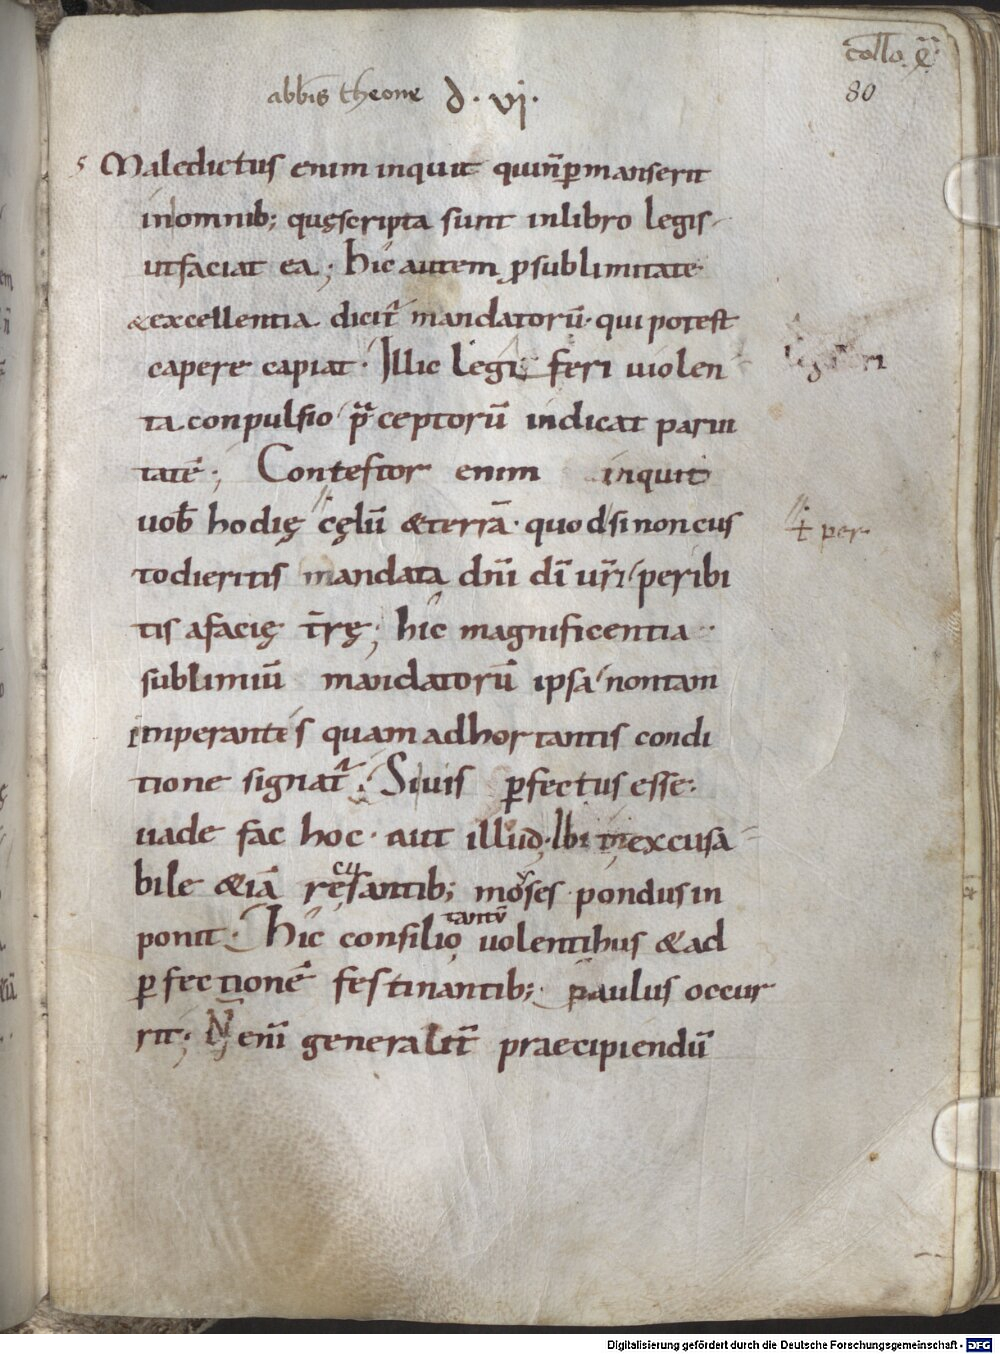 collo. q̄
80
abbis theone d. vi.
5 Maledictus enim inquit qui n̄ ꝑmanserit
in omnib; quę scripta sunt in libro legis
ut faciat ea; hic autem ꝓ sublimitate
& excellentia dicit̄ mandatorū. qui potest
capere capiat. Illic legi feri uiolen
ta conpulsio p̄ceptorū indicat parui
tatē; Contestor enim inquit
uob̄ hodię cęlū & terrā. quod si non cus
÷ per
todieritis mandata dn̄i dī ur̄i peribi
tis a facię t̄rę; hic magnificentia
sublimiū mandatorū ipsa non tam
imperantis quam adhortantis condi
tione signat̄. Si uis ꝑfectus esse.
uade fac hoc. aut illud. Ibi inexcusa
bile &iā ręcusantib; moyses pondus in
ponit. Hic consilio tantū uolentibus & ad
ꝑfectionē festinantib; paulus occur
rit; N̄ enī generalit̄ praecipiendū
Digitalisierung gefördert durch die Deutsche Forschungsgemeinschaft - DFG